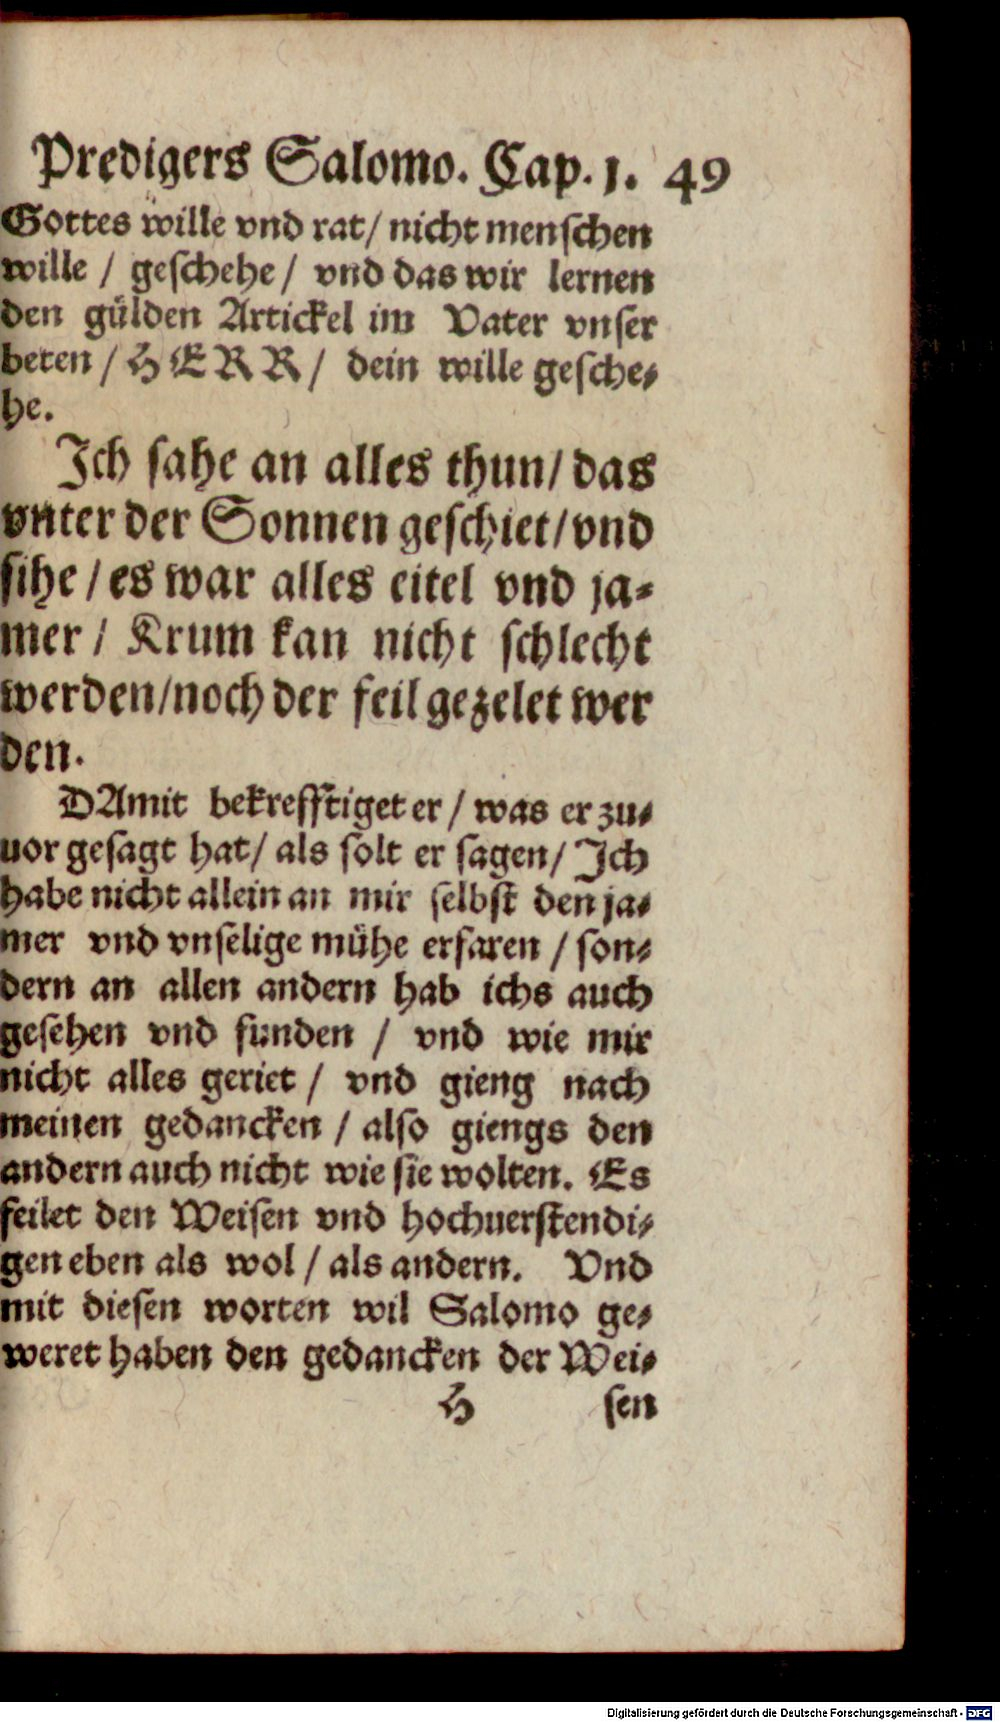 Predigers Salomo. Cap. 1. 49
Gottes wille vnd rat/ nicht menschen
wille / geschehe / vnd das wir lernen
den gülden Artickel im Vater vnser
beten / HERR / dein wille gesche-
he.
Ich sahe an alles thun/ das
vnter der Sonnen geschiet/vnd
sihe / es war alles eitel vnd ja-
mer / Krum kan nicht schlecht
werden/noch der feil gezelet wer
den.
DAmit bekrefftiget er / was er zu-
uor gesagt hat/ als solt er sagen/ Ich
habe nicht allein an mir selbst den ja-
mer vnd vnselige mühe erfaren / son-
dern an allen andern hab ichs auch
gesehen vnd funden / vnd wie mir
nicht alles geriet / vnd gieng nach
meinen gedancken / also giengs den
andern auch nicht wie sie wolten. Es
feilet den Weisen vnd hochuerstendi-
gen eben als wol / als andern. Vnd
mit diesen worten wil Salomo ge-
weret haben den gedancken der Wei-
H sen
Digitalisierung gefördert durch die Deutsche Forschungsgemeinschaft - DFG